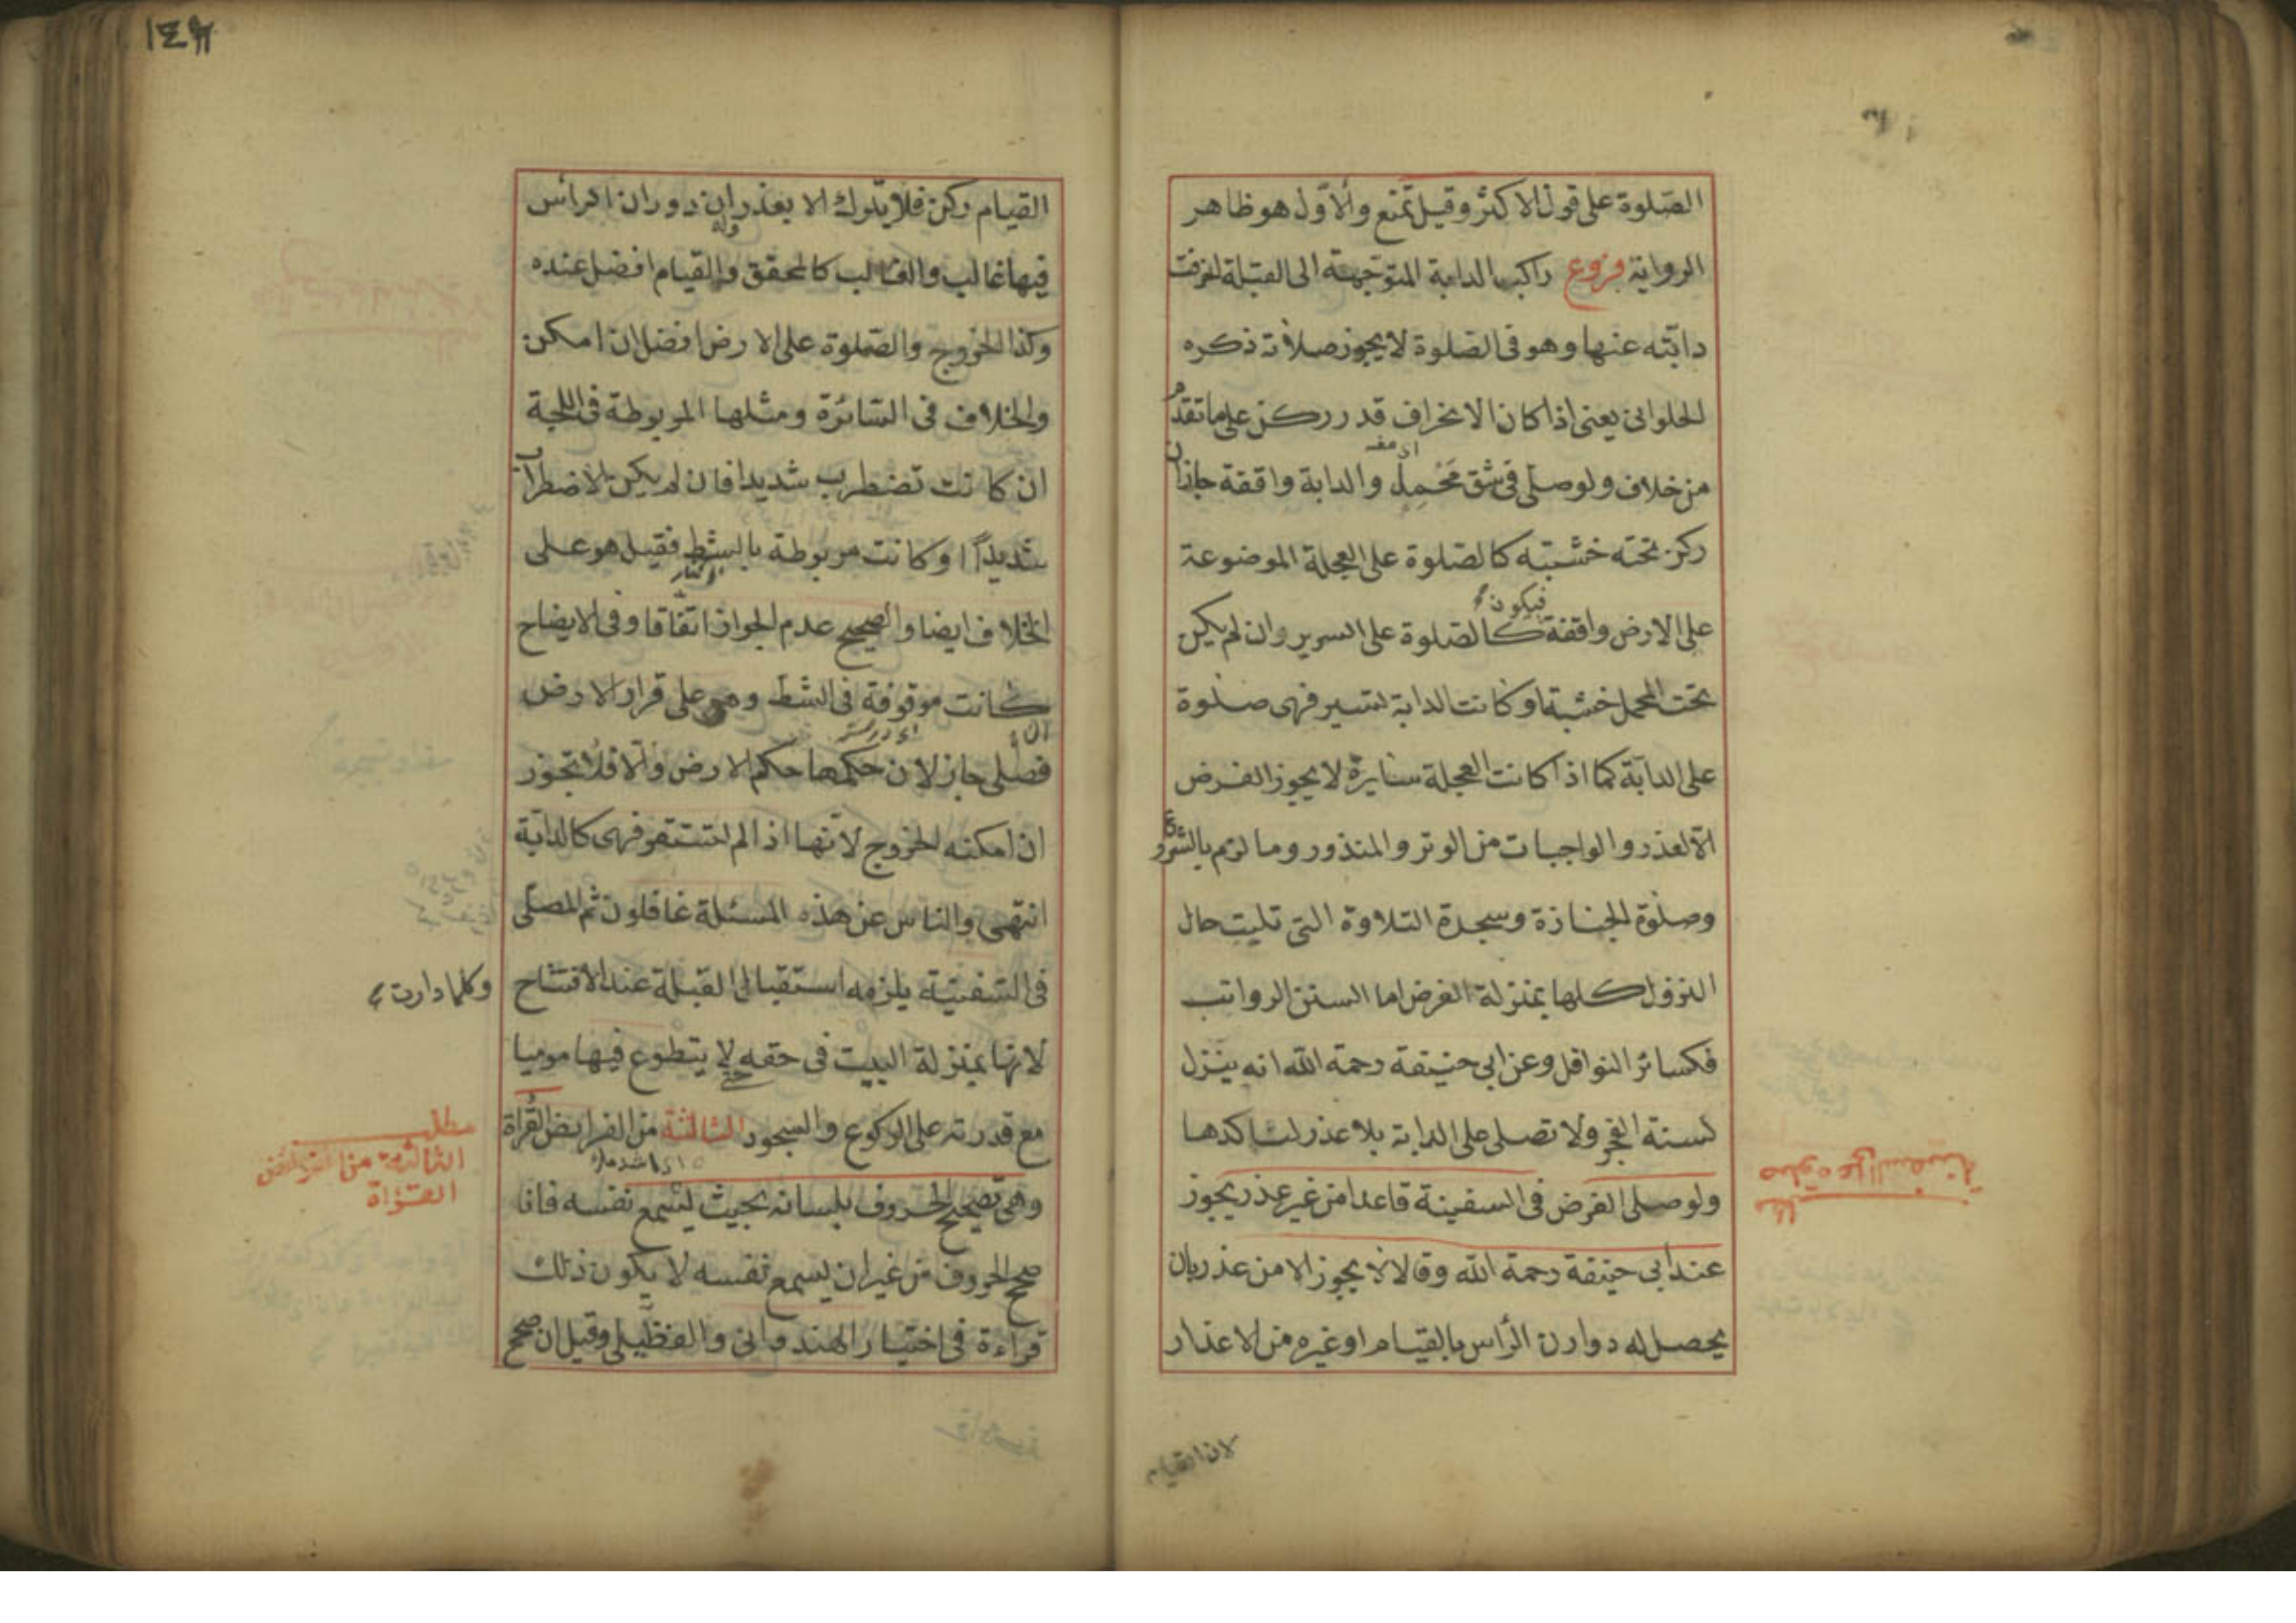 الصلوة على قول الاكثر وقيل تمنع والاول هو ظاهر
الرواية فروع راكب الدابة المتوجهة الى القبلة انحرفت
دابته عنها وهو فى الصلوة لا يجوز صلاته ذكره
الحلوانى يعنى اذا كان الانحراف قدر ركن على ما تقدم
من خلاف ولو صلى فى شق محمل والدابة واقفة جاز ان
ركز تحته خشبته كالصلوة على العجلة الموضوعة
فيكون
على الارض واقفة كالصلوة على السرير وان لم يكن
تحت المحمل خشبة او كانت الدابة تسير فهى صلوة
على الدابة كما اذا كانت العجلة سايرة لا يجوز الفرض
الا لعذر والواجبات من الوتر والمنذور وما لزم بالشروع
وصلوة الجنازة وسجدة التلاوة التى تليت حال
النزول كلها بمنزلة الفرض اما السنن الرواتب
فكسائر النوافل وعن ابى حنيفة رحمة الله انه ينزل
لسنة الفجر ولا تصلى على الدابة بلا عذر لتاكدها
ولو صلى الفرض فى السفينة قاعدا من غير عذر يجوز
عند ابى حنيفة رحمة الله وقالا لا يجوز الا من عذر بان
يحصل له دوارن الراس بالقيام او غيره من الاعذار
لان القيام
١٤٩
القيام ركن فلا يترك الا بعذر وله ان دوران الرأس
فيها غالب والغالب كالمحقق والقيام افضل عنده
وكذا الخروج والصلوة على الارض افضل ان امكن
والخلاف فى السائرة ومثلها المربوطة فى اللجة
ان كانت تضطرب شديدا فان لم يكن الاضطراب
شديدا او كانت مربوطة بالشط فقيل هو على
الخلاف ايضا والصحيح عدم الجواز اتفاقا وفى الايضاح
كانت موقوفة فى الشط وهى على قرار الارض
فصلى جاز لان حكمها حكم الارض والا فلا تجوز
ان امكنه الخروج لانها اذا لم تستقر فهى كالدابة
انتهى والناس عن هذه المسئلة غافلون ثم المصلى
فى السفينة يلزمه استقبال القبلة عند الافتتاح
وكلما دارت
لانها بمنزلة البيت فى حقه لا يتطوع فيها موميا
مع قدرته على الركوع والسجود الثالثة من الفرايض القراة
مطلب
الثالثة من الفرائض
القراة
وهى تصحيح الحروف بلسانه بحيث يسمع نفسه فان
صحح الحروف من غير ان يسمع نفسه لا يكون ذلك
قراءة فى اختيار الهندوانى والفظيلى وقيل ان صحح